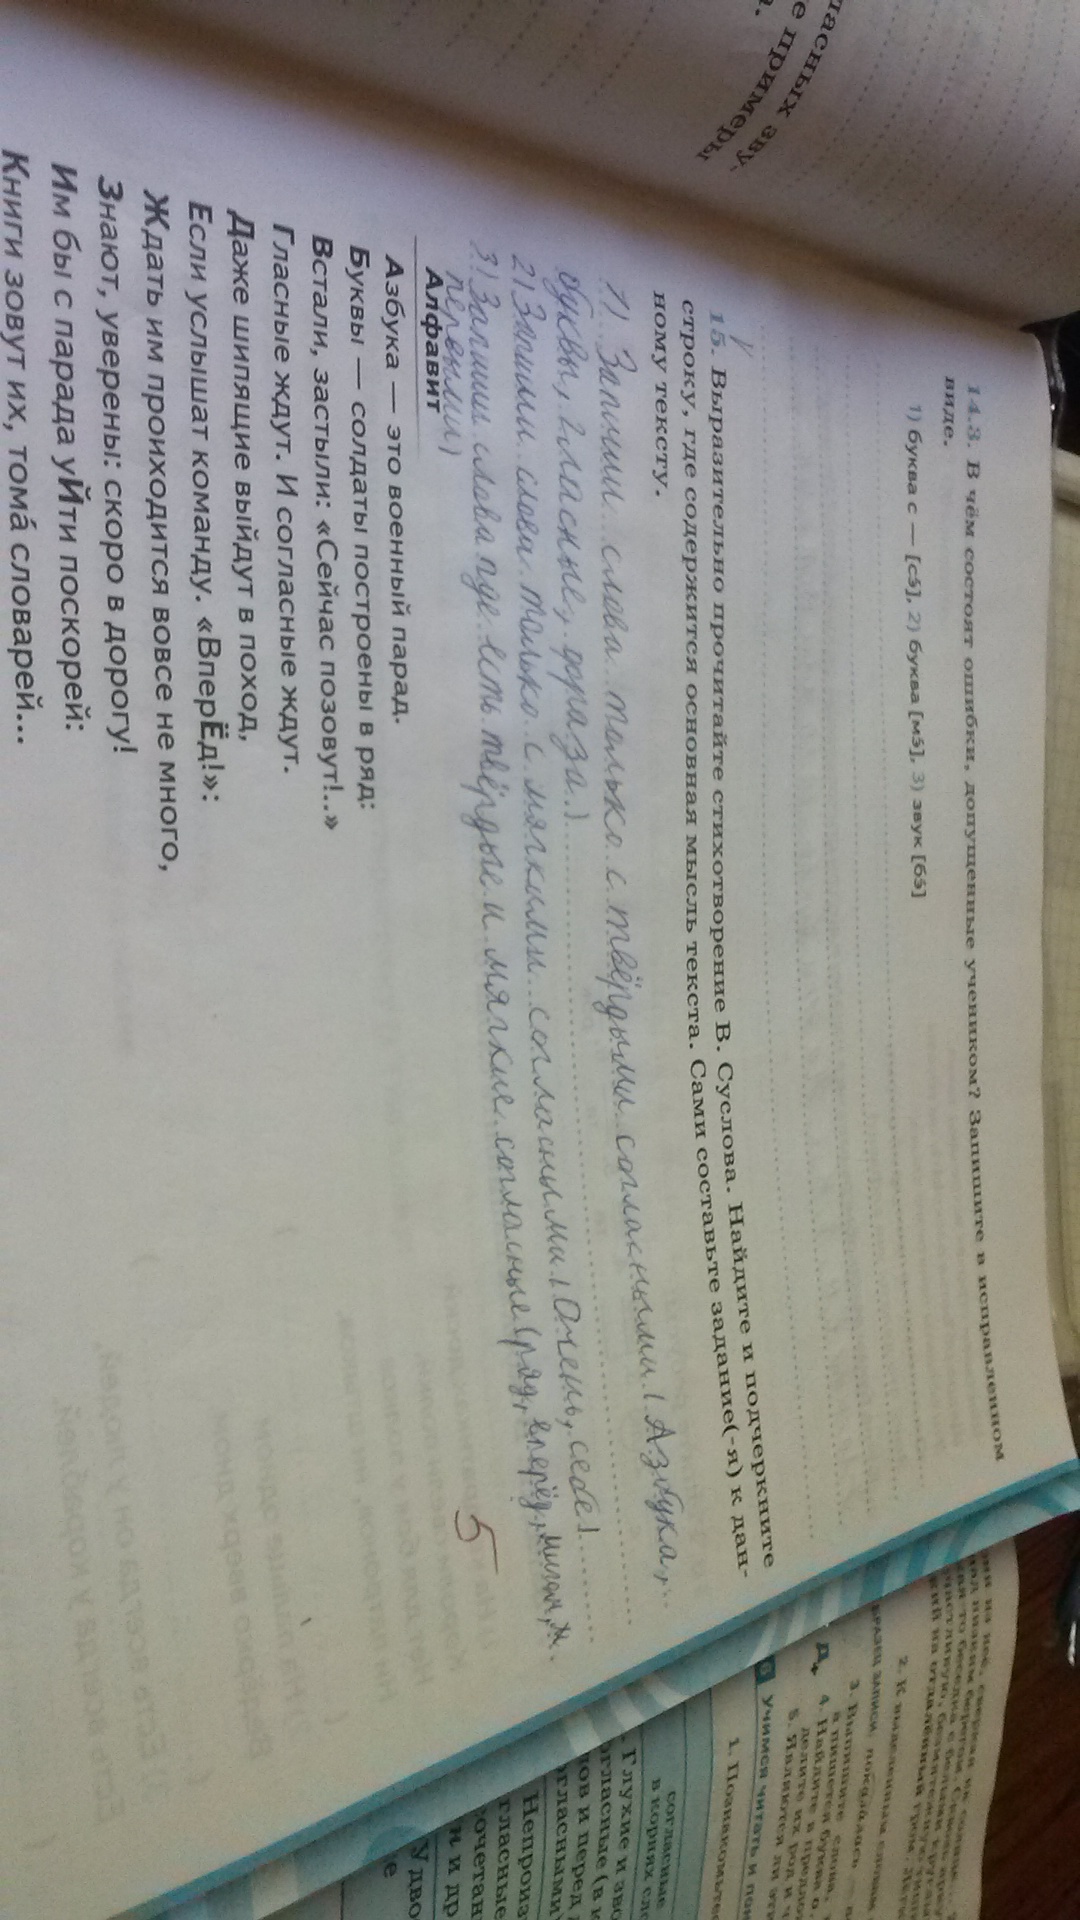 ласных зву-
е примеры
14.3. В чём состоят ошибки, допущенные учеником? Запишите в исправленном
виде.
1) буква с — [сэ], 2) буква [мэ], 3) звук [бэ]
15. Выразительно прочитайте стихотворение В. Суслова. Найдите и подчеркните
строку, где содержится основная мысль текста. Сами составьте задание(-я) к дан-
ному тексту.
1) Запиши слова только с твёрдыми согласными. (Азбука,
буквы, гласные,
2) Запиши слова только с мягкими согласными. (Очень, себе)
3) Запиши слова где есть твёрдые и мягкие согласные (ряд, вперёд,
первыми)
5
Алфавит
Азбука — это военный парад.
Буквы — солдаты построены в ряд:
Встали, застыли: «Сейчас позовут!..»
Гласные ждут. И согласные ждут.
Даже шипящие выйдут в поход,
Если услышат команду. «ВперЁд!»:
Ждать им проиходится вовсе не много,
Знают, уверены: скоро в дорогу!
Им бы с парада уЙти поскорей:
Книги зовут их, тома́ словарей...
2. К выделенным словам
ОБРАЗЕЦ ЗАПИСИ: показалось
3. Выпишите слова,
а пишется буква о.
4. Найдите в предлож
делите их род и ч
5. Являются ли эти
6 Учимся читать и пон
1. Познакомьтес
согласные
в корнях сло
Глухие и зво
огласные (в к
ов и перед
огласными)
Непроиз
гласные
сочетан
н и др
Удво